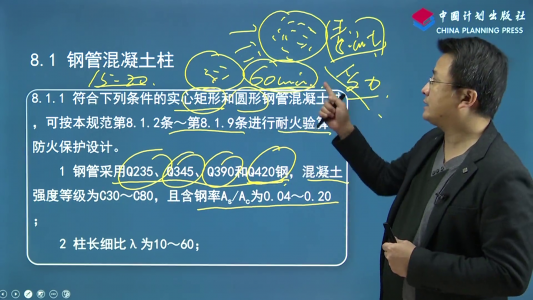 中国计划出版社
CHINA PLANNING PRESS
8.1 钢管混凝土柱
15-20
60min
8.1.1 符合下列条件的实心矩形和圆形钢管混凝土
,可按本规范第8.1.2条~第8.1.9条进行耐火验
防火保护设计。
1 钢管采用Q235、Q345、Q390和Q420钢,混凝土
强度等级为C30~C80,且含钢率As/Ac为0.04~0.20
;
2 柱长细比λ为10~60;